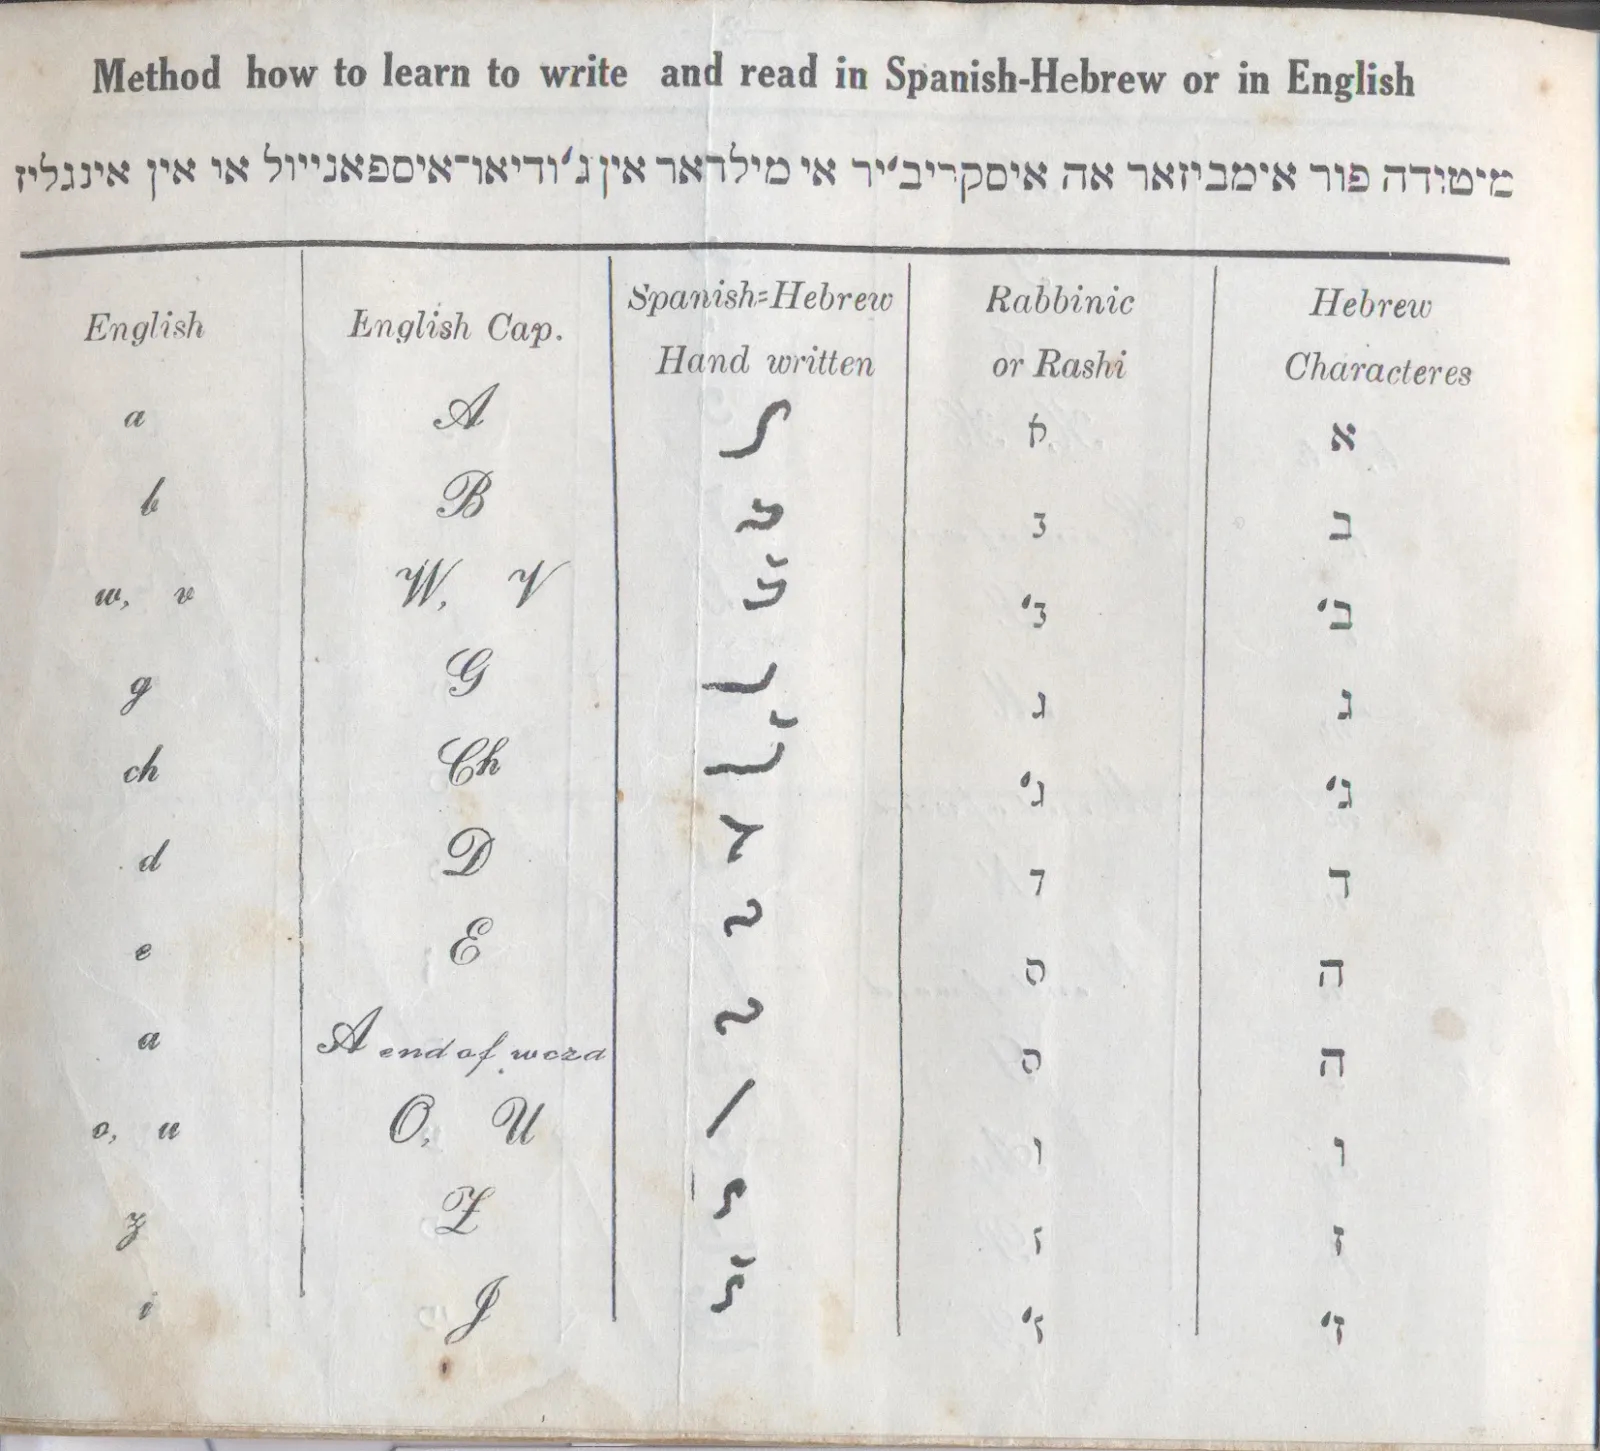 Method how to learn to write and read in Spanish-Hebrew or in English
מיטודה פור אימביזאר אה איסקריב׳יר אי מילדאר אין ג׳ודיאו־איספאנייול או אין אינגליז
English English Cap. Spanish=Hebrew Hand written Rabbinic or Rashi Hebrew Characteres
a A א א
b B ב ב
w, v W, V ב׳ ב׳
g G ג ג
ch Ch ג׳ ג׳
d D ד ד
e E ה ה
a A end of word ה ה
o, u O, U ו ו
z Z ז ז
i J ז׳ ז׳